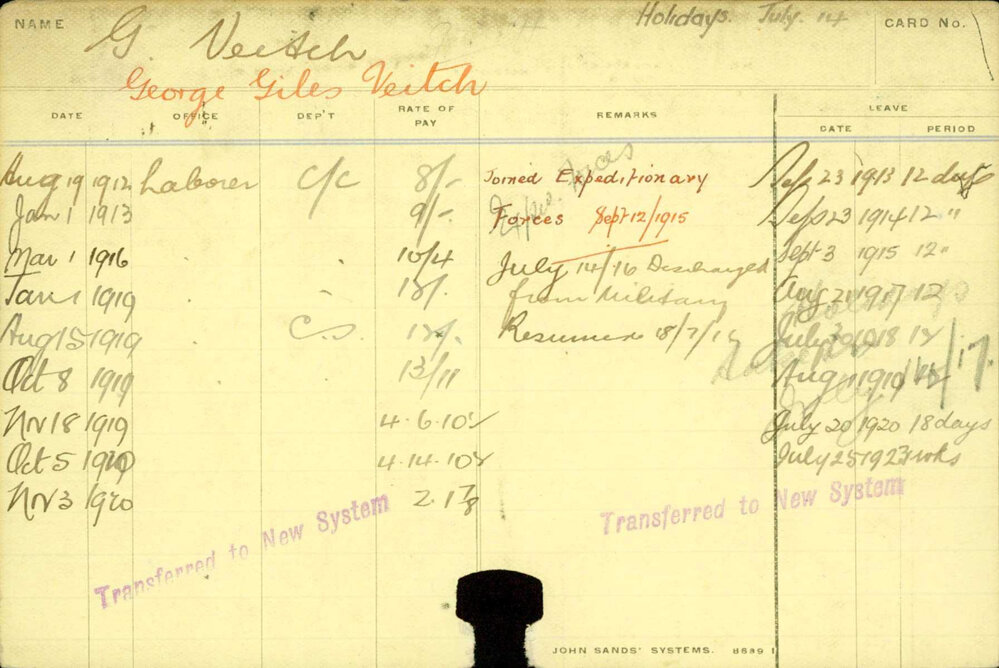 NAME G. Veitch Holidays. July. 14 CARD NO.
George Giles Veitch
DATE OFFICE DEP'T RATE OF PAY REMARKS LEAVE
DATE PERIOD
Aug 19 1912 Laborer C/C 8/- Joined Expeditionary Sep 23 1913 12 days
Jan 1 1913 9/- Forces Sept 12/1915 Sep 23 1914 12 "
Mar 1 1916 10/4 July 14/16 Discharged Sept 3 1915 12 "
Jan 1 1919 from Military Aug 21 1917 12
Aug 15 1919 C.S. Resumed 18/7/16 July 1918
Oct 8 1919 13/11 Aug 1919
Nov 18 1919 4-6-10½ July 20 1920 18 days
Oct 5 4-14-10½ July 25 1923
Nov 3 1920 2-17-8
Transferred to New System
Transferred to New System
JOHN SANDS' SYSTEMS. 8689